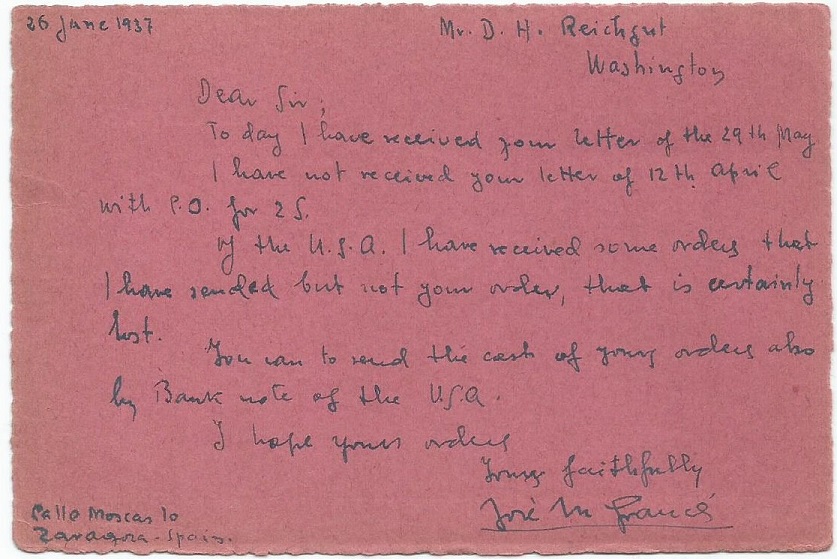 26 June 1937
Mr. D. H. Reichgut
Washington
Dear Sir,
To day I have received your letter of the 29th May
I have not received your letter of 12th april
with P.O. for 2 S.
Of the U.S.A. I have received some orders that
I have sended but not your order, that is certainly
lost.
You can to send the cost of yours orders also
by Bank note of the U.S.A.
I hope yours orders
Yours faithfully
José M
Calle Moscas 10
Zaragoza - Spain.